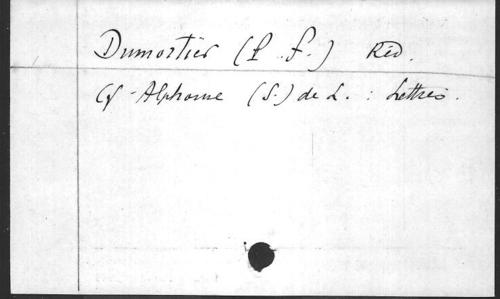 Dumortier (P. F.) Réd.
Cf Alphonse (S.) de L. : Lettres.